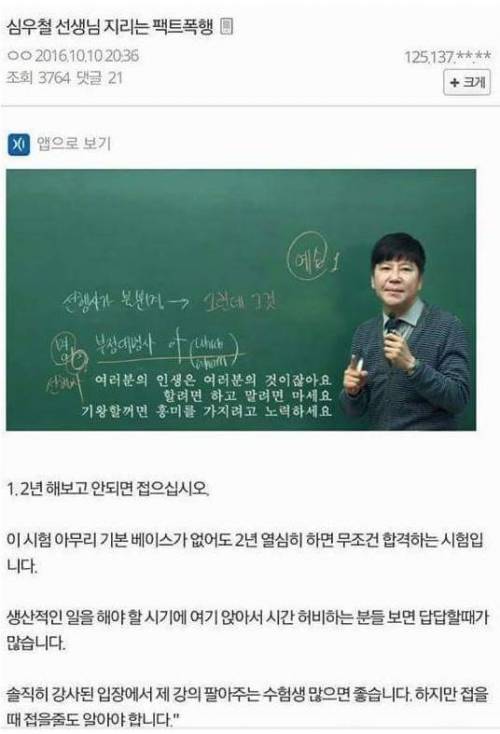 심우철 선생님 지리는 팩트폭행
ㅇㅇ 2016.10.10 20:36
125.137.**.**
조회 3764 댓글 21
+ 크게
앱으로 보기
예심 1
선행사가 불분명 → 그런데 그것
부정대명사 of (which
whom)
선행사
여러분의 인생은 여러분의 것이잖아요
할려면 하고 말려면 마세요
기왕할꺼면 흥미를 가지려고 노력하세요
1. 2년 해보고 안되면 접으십시오.
이 시험 아무리 기본 베이스가 없어도 2년 열심히 하면 무조건 합격하는 시험입
니다.
생산적인 일을 해야 할 시기에 여기 앉아서 시간 허비하는 분들 보면 답답할때가
많습니다.
솔직히 강사된 입장에서 제 강의 팔아주는 수험생 많으면 좋습니다. 하지만 접을
때 접을줄도 알아야 합니다."